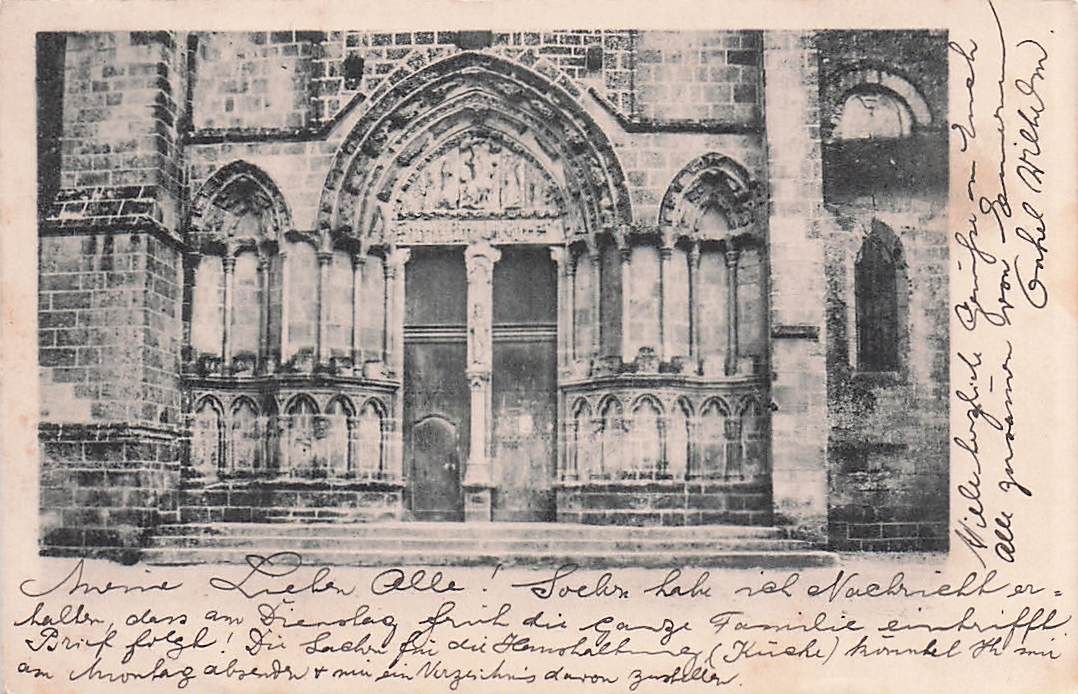 Meine Lieben Alle! Soeben habe ich Nachricht er=
halten, dass am Dienstag früh die ganze Familie eintrifft.
Brief folgt! Die Sachen für die Haushaltung (Küche) könntet Ihr mir
am Montag absenden + mir ein Verzeichnis davon zustellen.
Viele herzliche Grüsse an Euch
alle zusammen von Eurem
Onkel Wilhelm.